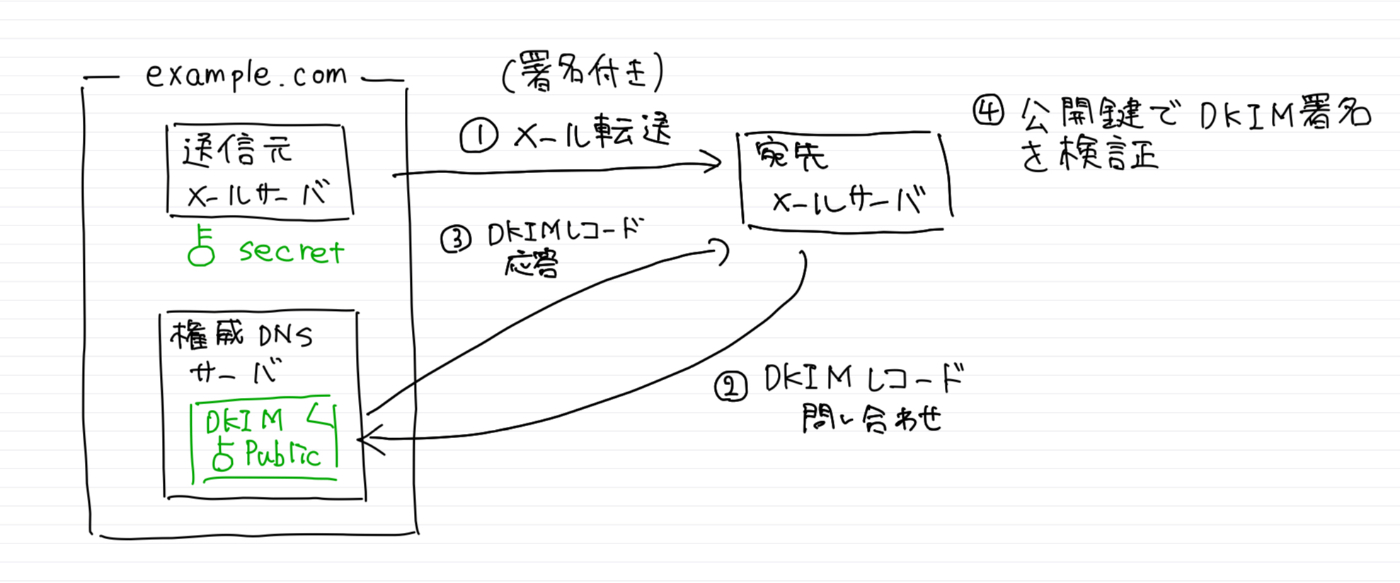 example.com
送信元
メールサーバ
secret
権威DNS
サーバ
DKIM レ
Public
(署名付き)
① メール転送
宛先
メールサーバ
③ DKIMレコード
応答
② DKIMレコード
問い合わせ
④ 公開鍵でDKIM署名
を検証